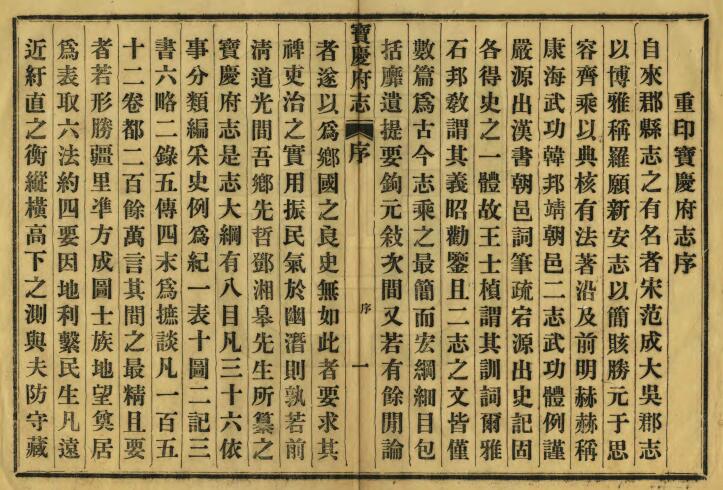 重印寶慶府志序
自來郡縣志之有名者宋范成大吳郡志
以博雅稱羅願新安志以簡賅勝元于思
容齊乘以典核有法著沿及前明赫赫稱
康海武功韓邦靖朝邑二志武功體例謹
嚴源出漢書朝邑詞筆疏宕源出史記固
各得史之一體故王士禎謂其訓詞爾雅
石邦教謂其義昭勸鑒且二志之文皆僅
數篇爲古今志乘之最簡而宏綱細目包
括靡遺提要鉤元敍次間又若有餘閒論
寶慶府志 序
序 一
者遂以爲鄉國之良史無如此者要求其
裨吏治之實用振民氣於幽潛則孰若前
清道光間吾鄉先哲鄧湘皋先生所纂之
寶慶府志是志大綱有八目凡三十六依
事分類編采史例爲紀一表十圖二記三
書六略二錄五傳四末爲摭談凡一百五
十二卷都二百餘萬言其間之最精且要
者若形勝疆里準方成圖士族地望奠居
爲表取六法約四要因地利繫民生凡遠
近紆直之衡縱橫高下之測與夫防守藏